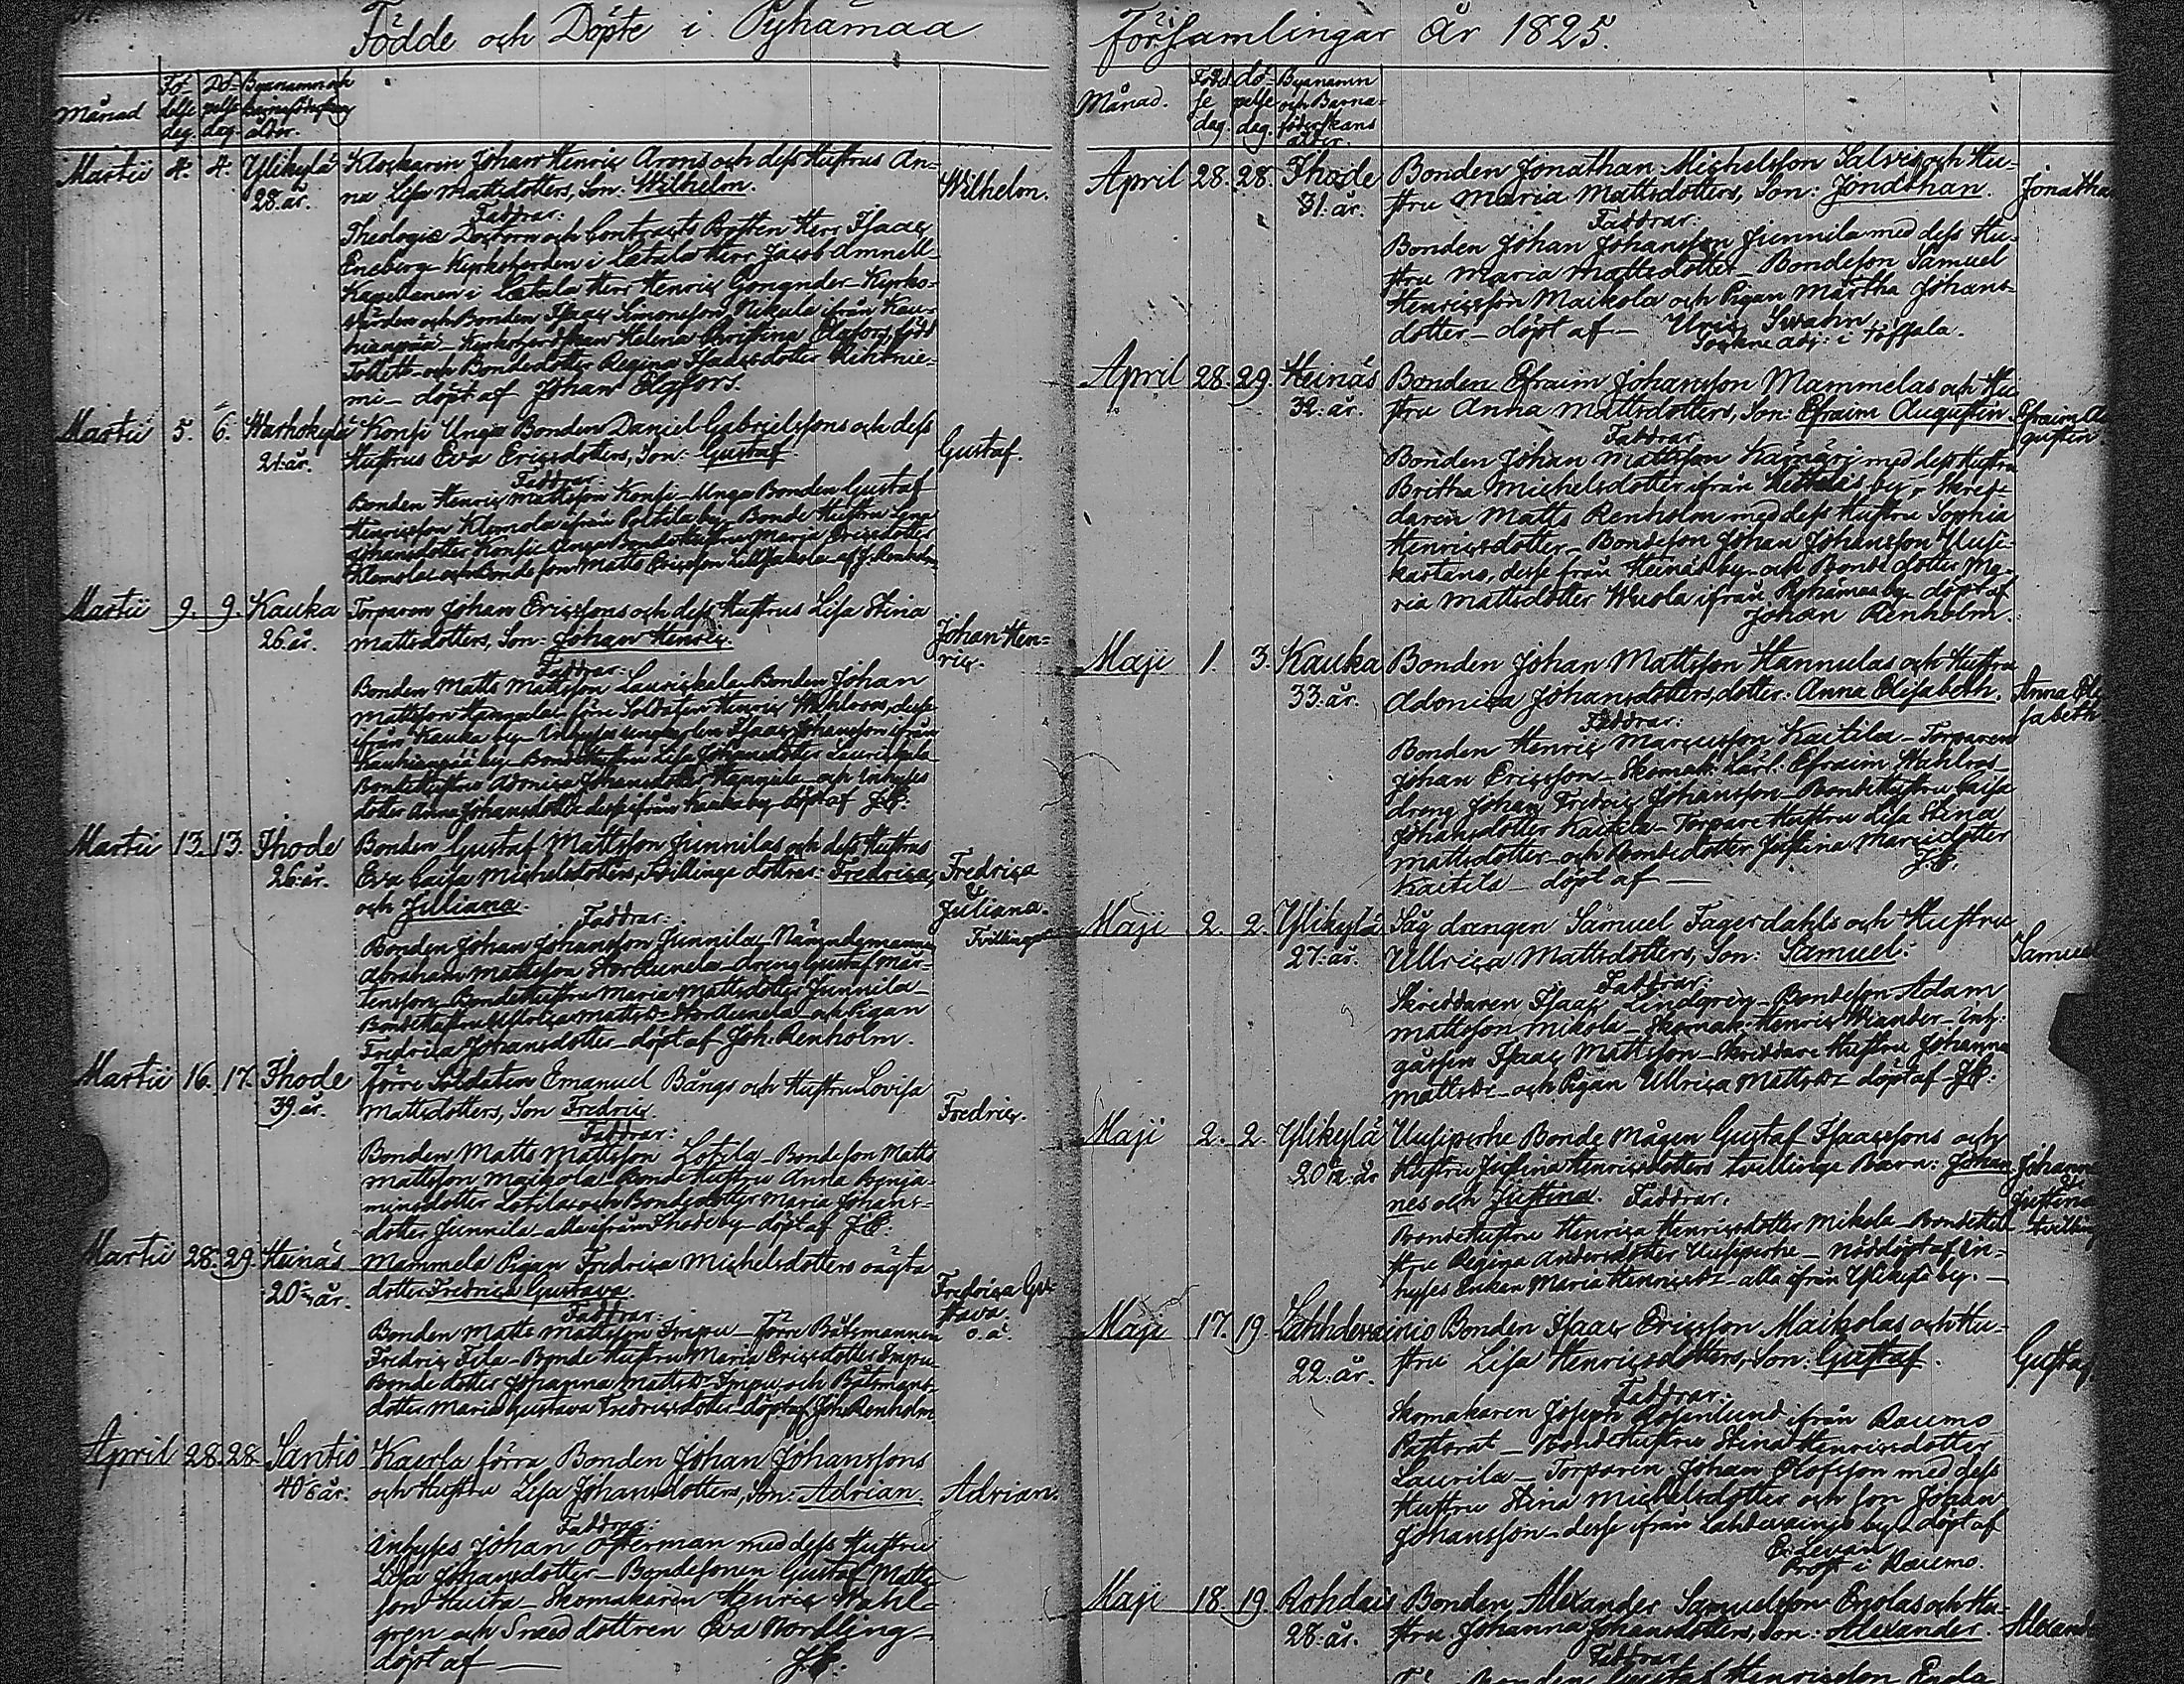 Födde och Döpte i Pyhämaa
Månad
Fö-
delse
dag.
Dö-
pelse
dag.
Byanamn och
ålder.
Martii 4. 4. Ylikylä
28. år.
Klockaren Johan Henric Arens och dess Hustrus An-
na Lisa Mattsdotters, Son. Wilhelm.
Wilhelm.
Faddrar:
Theologiæ Doctorn och Contracts Prosten Herr Isaac
Eneberg Kyrkoherden i Letala Herr Jacob Amnell
Kapellanen i Letala Herr Henric Kyrko-
värden och Bonden Isaac Simonsson Nikula ifrån Kau-
Kyrkoherdskan Helena Christina Elgfors, född
och Bondedotter Regina Isaacsdotter
döpt af Johan Elgfors.
Martii 5. 6.
21. år.
Konsi Unga Bonden Daniel Gabrielssons och dess
Hustrus Eva Ericsdotters, Son: Gustaf
Gustaf.
Faddrar:
Bonden Henric Mattsson Konsi Unga Bonden Gustaf
Henricsson Klemola ifrån by Bonde Hustru Lena
Johansdotter Konsi unga Bonde Hustru Maria Ericsdotter
Klemola och Bonde son Matts Ericsson af J. Renholm
Martii 9. 9. Kauka
26. år.
Torparen Johan Ericssons och dess Hustrus Lisa Stina
Mattsdotters, Son: Johan Henric
Johan Hen-
ric.
Faddrar:
Bonden Matts Mattsson Bonden Johan
Mattsson förre Soldaten Henric Wahlroos, desse
ifrån Kauka by Isaac Johansson ifrån
by Bonde Hustru Lisa Johansdotter
Bonde Hustru Adonica Johansdotter Hannula och Inhyses
dotter Anna Johansdotter desse ifrån Kauka by döpt af
Martii 13. 13. Ihode
26. år.
Bonden Gustaf Mattsson Junnilas och dess Hustrus
Eva Caisa Michelsdotters, Tvillinge döttrar: Fredrica,
och Juliana.
Fredrica
&
Juliana.
Tvillingar
Faddrar:
Bonden Johan Johansson Junnila Nämndemannen
Abraham Mattsson dreng Gustaf Mår-
tensson Bonde Hustru Maria Mattsdotter Junnila
Bonde Hustru och Pigan
Fredrica Johansdotter döpt af Joh. Renholm.
Martii 16. 17. Ihode
39. år.
förre Soldaten Emanuel Bångs och Hustru Lovisa
Mattsdotters, Son Fredric
Fredric.
Faddrar:
Bonden Matts Mattsson Lotila Bonde son Matts
Mattsson Maikola Bonde Hustru Anna Benja-
minsdotter Lotila och Bondedotter Maria Johans-
dotter Junnila alla ifrån Ihode by döpt af
Martii 28. 29. Heinäs
20 år.
Mammela Pigan Fredrica Michelsdotters oägta
dotter Fredrica Gustava.
Fredrica Gu-
stava
o. ä.
Faddrar:
Bonden Matts Mattsson Impu förre Båtsmannen
Fredric Fila Bonde Hustru Maria Ericsdotter Impu
Bonde dotter Johanna Impu, och Båtsmans-
dotter Maria Gustava Fredricsdotter döpt af Joh. Renholm
April 28. 28. Santio
40 år.
Kaerla förra Bonden Johan Johanssons
och Hustru Lisa Johansdotters, Son: Adrian.
Adrian.
Faddrar:
Inhyses Johan Österman med dess Hustru
Lisa Johansdotter Bondesonen Gustaf Matts-
son Skomakaren Henric Wahl-
gren och dottren Eva Nordling
döpt af
Församlingar År 1825.
Månad.
Födel-
se
dag.
dö-
pelse
dag.
Byanamn
och Barna-
föderskans
ålder.
April 28. 28. Ihode
31. år.
Bonden Jonathan Michelsson Salvis och Hu-
stru Maria Mattsdotters, Son: Jonathan.
Jonatha
Faddrar:
Bonden Johan Johansson Junnila med dess Hu-
stru Maria Mattsdotter Bondeson Samuel
Henricsson Maikola och Pigan Märtha Johans-
dotter döpt af Uric Swahn
Sockne adj. i
April 28. 29. Heinäs
32. år.
Bonden Efraim Johansson Mammelas och Hu-
stru Anna Mattsdotters, Son: Efraim Augustin
Efraim Au
gustin.
Faddrar
Bonden Johan Mattsson Kamäri med dess Hustru
Britha Michelsdotter ifrån by, Skräd-
daren Matts Renholm med dess Hustru Sophia
Henricsdotter Bondeson Johan Johansson Uusi-
kartano, desse från Heinäs by och Bonde dotter Ma-
ria Mattsdotter ifrån by döpt af
Johan Renholm.
Maji 1. 3. Kauka
33. år.
Bonden Johan Mattsson Hannulas och Hustru
Adonica Johansdotters, dotter: Anna Elisabeth.
Anna Eli
sabeth
Faddrar:
Bonden Henric Marcusson Kaitila Torparen
Johan Ericsson Skomak. Lärl. Efraim Wahlroos
dreng Johan Fredric Johansson Bonde Hustru Caisa
Johansdotter Kaitila Torpare Hustru Lisa Stina
Mattsdotter och Bondedotter Justina Marcsdotter
Kaitila döpt af
Maji 2. 2. Ylikylä
27. år.
Såg drengen Samuel Fagerdahls och Hustru
Ullrica Mattsdotters, Son: Samuel:
Samuel
Faddrar:
Skreddaren Isaac Lindgren Bondeson Adam
Mattsson Mikola Skomak. Henric Wiander inh.
gåssen Isaac Mattsson Skreddare Hustru Johanna
och Pigan Ullrica döpt af
Maji 2. 2. Ylikylä
20 år
Uusiperhe Bonde Mågen Gustaf Isaacssons och
Hustru Justina Henricsdotters tvillinge Barn: Johan-
nes och Justina. Faddrar:
Johannes
&
Justina
tvilling
Bonde Hustru Henrica Henricsdotter Mikola Bonde Hu-
stru Regina Andersdotter Uusiperhe nöddöpt af in-
hyses Enkan Maria alla ifrån Ylikylä by.
Maji 17. 19.
22. år.
Bonden Isaac Ericsson Maikolas och Hu-
stru Lisa Henricsdotters, Son: Gustaf.
Gustaf
Faddrar:
Skomakaren Joseph Rosenlund ifrån Raumo
Pastorat Bonde Hustru Stina Henricsdotter
Laurila Torparen Johan Olofsson med dess
Hustru Stina Michelsdotter och son Johan
Johansson desse ifrån by döpt af
Levan
Prost i Raumo.
Maji 18. 19. Rohdais
28. år.
Bonden Alexander Samuelsson Enolas och Hu-
stru Johanna Johansdotters, Son: Alexander
Alexand
Faddrar
Bonden Gustaf Henricsson Enola